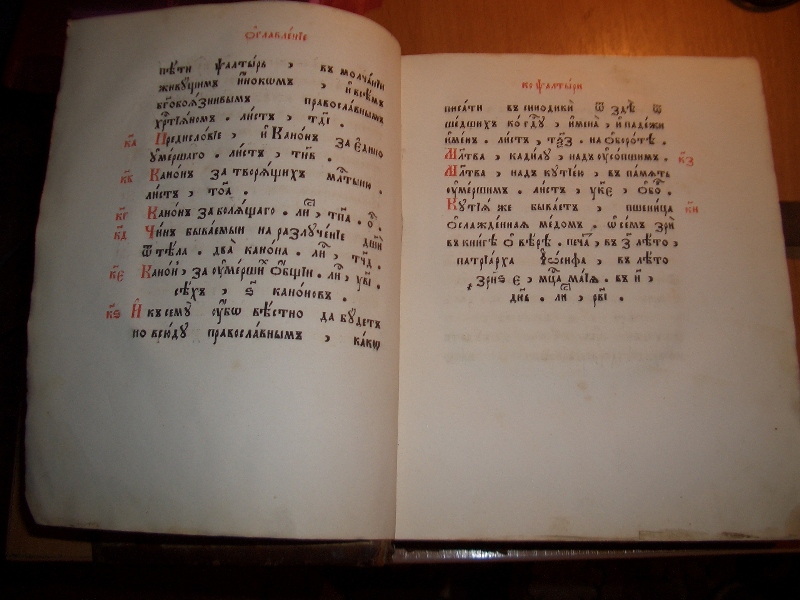 Ѡ҆главле́нїе
пѣ́ти ѱалты́рь , въ молча́нїи
живꙋ́щимъ и҆́нокѡмъ , и҆ всѣ̑мъ
бг҃обоѧ́знивымъ правосла́внымъ
хрⷭ҇тїѧ́номъ . ли́стъ ,
к҃а Предисло́вїе , и҆ Кано́н за є҆ди́но
ᲂу҆ме́ршаго . ли́стъ ,
к҃в Кано́н за творѧ́щихъ млⷭ҇тыню .
ли́стъ ,
к҃г Кано́н за болѧ́щаго .
к҃д Чи́н быва́емыи на разлꙋче́нїе дш҃и
ѿ тѣ́ла . два̀ кано́на .
к҃є Кано́н , за ᲂу҆ме́рший ѻ҆́бщїи .
всѣ́хъ , ѕ҃ кано́новъ .
к҃ѕ И҆ къ семꙋ̀ ᲂу҆́бѡ вѣ́стно да бꙋ́детъ
по всю́дꙋ правосла́внымъ , ка́кѡ
ко ѱалты́ри
писа́ти въ синодики̑ ѿ здѣ̀ ѿ
ше́дшихъ ко гдⷭ҇ꙋ , и҆мена̀ , и҆ паде́жи
и҆ме́н . ли́стъ , на ѻ҆боро́тѣ .
Мл҃тва , кади́лꙋ , над ᲂу҆со́пшимъ . к҃з
Мл҃тва , надъ кꙋтїе́ю , въ па́мѧть
ᲂу҆ме́ршимъ . ли́стъ , ᲂу҆ке ,
Кꙋтїѧ́ же быва́етъ , пшени́ца к҃и
ѻ҆слажде́ннаѧ ме́домъ . ѡ҆ се́мъ зрѝ
въ кни́гѣ ѻ҆ вѣ́рѣ . печа́т , въ з҃ лѣ́то ,
патрїа́рха І҆ѡ́сифа , въ лѣ́то
҂зрнѕ є , мцⷭ҇а ма́їѧ . въ и҃ ,